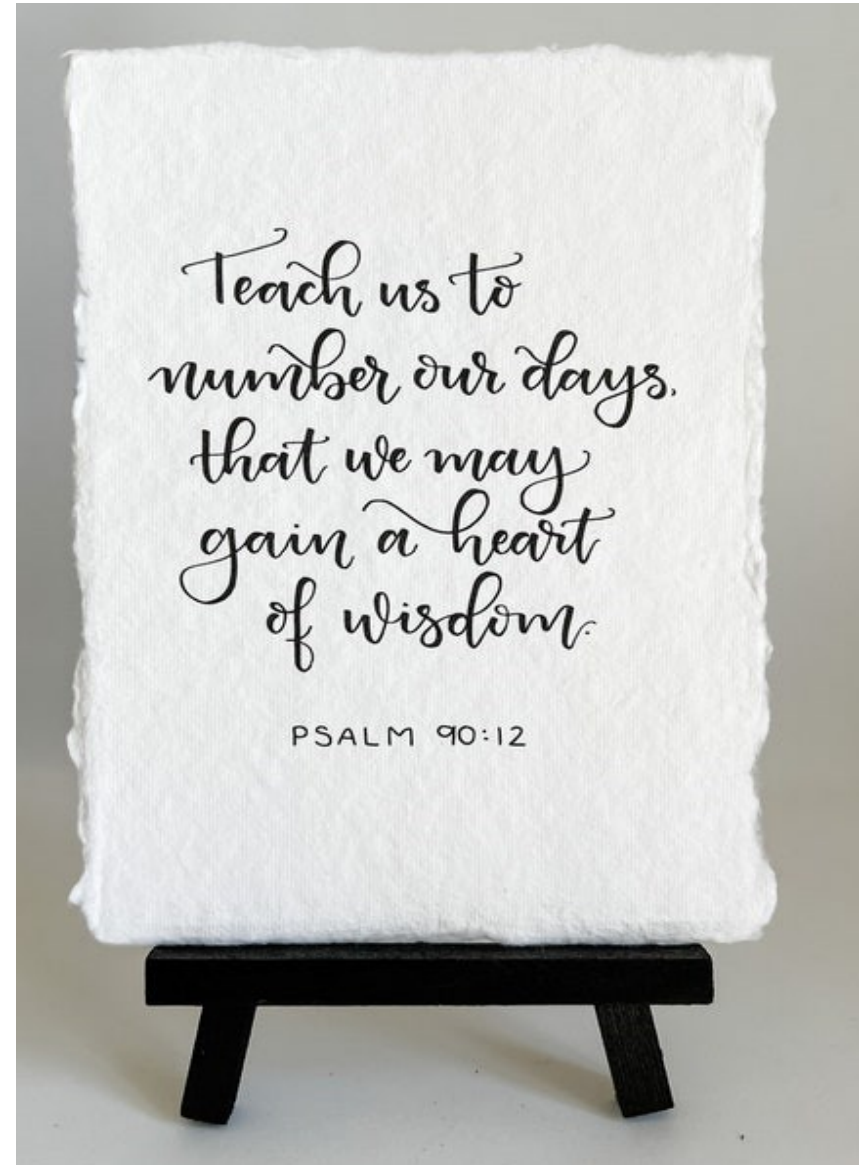 Teach us to
number our days,
that we may
gain a heart
of wisdom.
PSALM 90:12